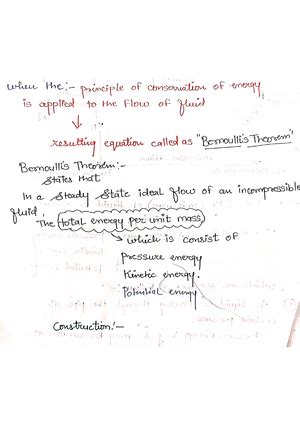 when the:- principle of conservation of energy
is applied to the flow of fluid
↓
resulting equation called as "Bernoulli's Theorem"
Bernoulli's Theorem:-
States that
In a steady state ideal flow of an incompressible
fluid,
The total energy per unit mass
which is consist of
Pressure energy
Kinetic energy.
Potential energy
Construction:-